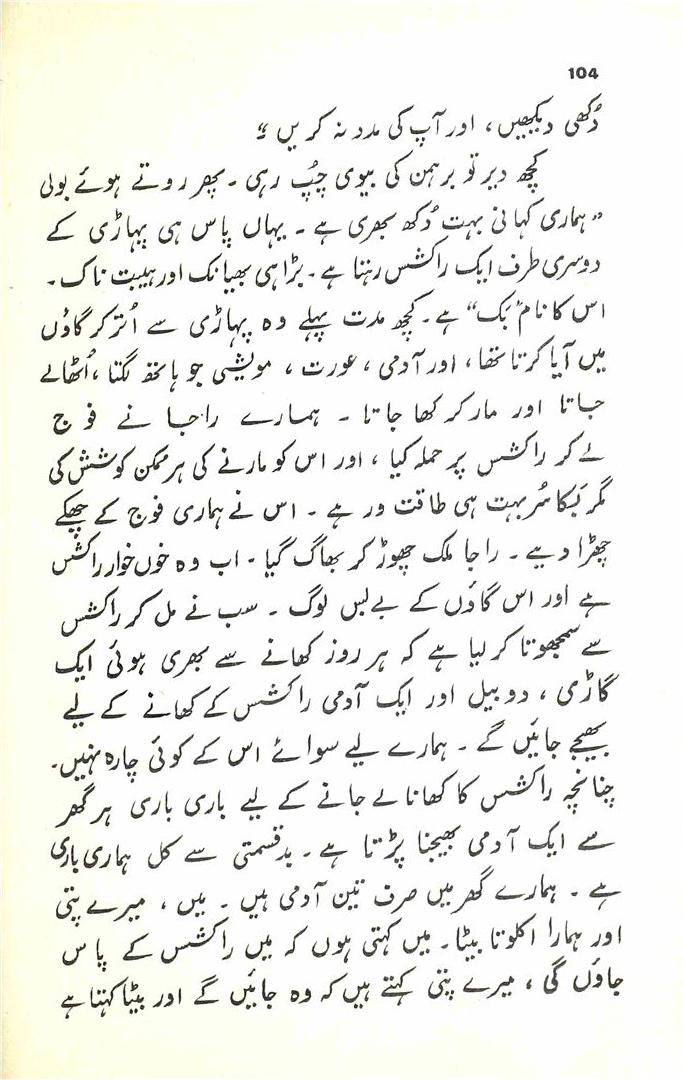 104
دُکھی دیکھیں، اور آپ کی مدد نہ کریں“
کچھ دیر تو برہمن کی بیوی چپُ رہی ۔ پھر روتے ہوئے بولی
”ہماری کہانی بہت دُکھ بھری ہے ۔ یہاں پاس ہی پہاڑی کے
دوسری طرف ایک راکشس رہتا ہے ۔ بڑا ہی بھیانک اور ہیبت ناک ۔
اس کا نام ”بک“ ہے ۔ کچھ مدت پہلے وہ پہاڑی سے اُتر کر گاؤں
میں آیا کرتا تھا، اور آدمی ، عورت ، مویشی جو ہاتھ لگتا ، اُٹھالے
جاتا اور مار کر کھا جاتا ۔ ہمارے راجا نے فوج
لے کر راکشس پر حملہ کیا ، اور اس کو مارنے کی ہر ممکن کوشش کی
مگر بَکا سُر بہت ہی طاقت ور ہے ۔ اس نے ہماری فوج کے چھکے
چھڑا دیے ۔ راجا ملک چھوڑ کر بھاگ گیا ۔ اب وہ خوں خوار راکشس
ہے اور اس گاؤں کے بے بس لوگ ۔ سب نے مل کر راکشس
سے سمجھوتا کر لیا ہے کہ ہر روز کھانے سے بھری ہوئی ایک
گاڑی ، دو بیل اور ایک آدمی راکشس کے کھانے کے لیے
بھیجے جائیں گے ۔ ہمارے لیے سوائے اس کے کوئی چارہ نہیں ۔
چنانچہ راکشس کا کھانا لے جانے کے لیے باری باری ہر گھر
سے ایک آدمی بھیجنا پڑتا ہے ۔ بدقسمتی سے کل ہماری باری
ہے ۔ ہمارے گھر میں صرف تین آدمی ہیں ۔ میں ، میرے پتی
اور ہمارا اکلوتا بیٹا ۔ میں کہتی ہوں کہ میں راکشس کے پاس
جاؤں گی ، میرے پتی کہتے ہیں کہ وہ جائیں گے اور بیٹا کہتا ہے